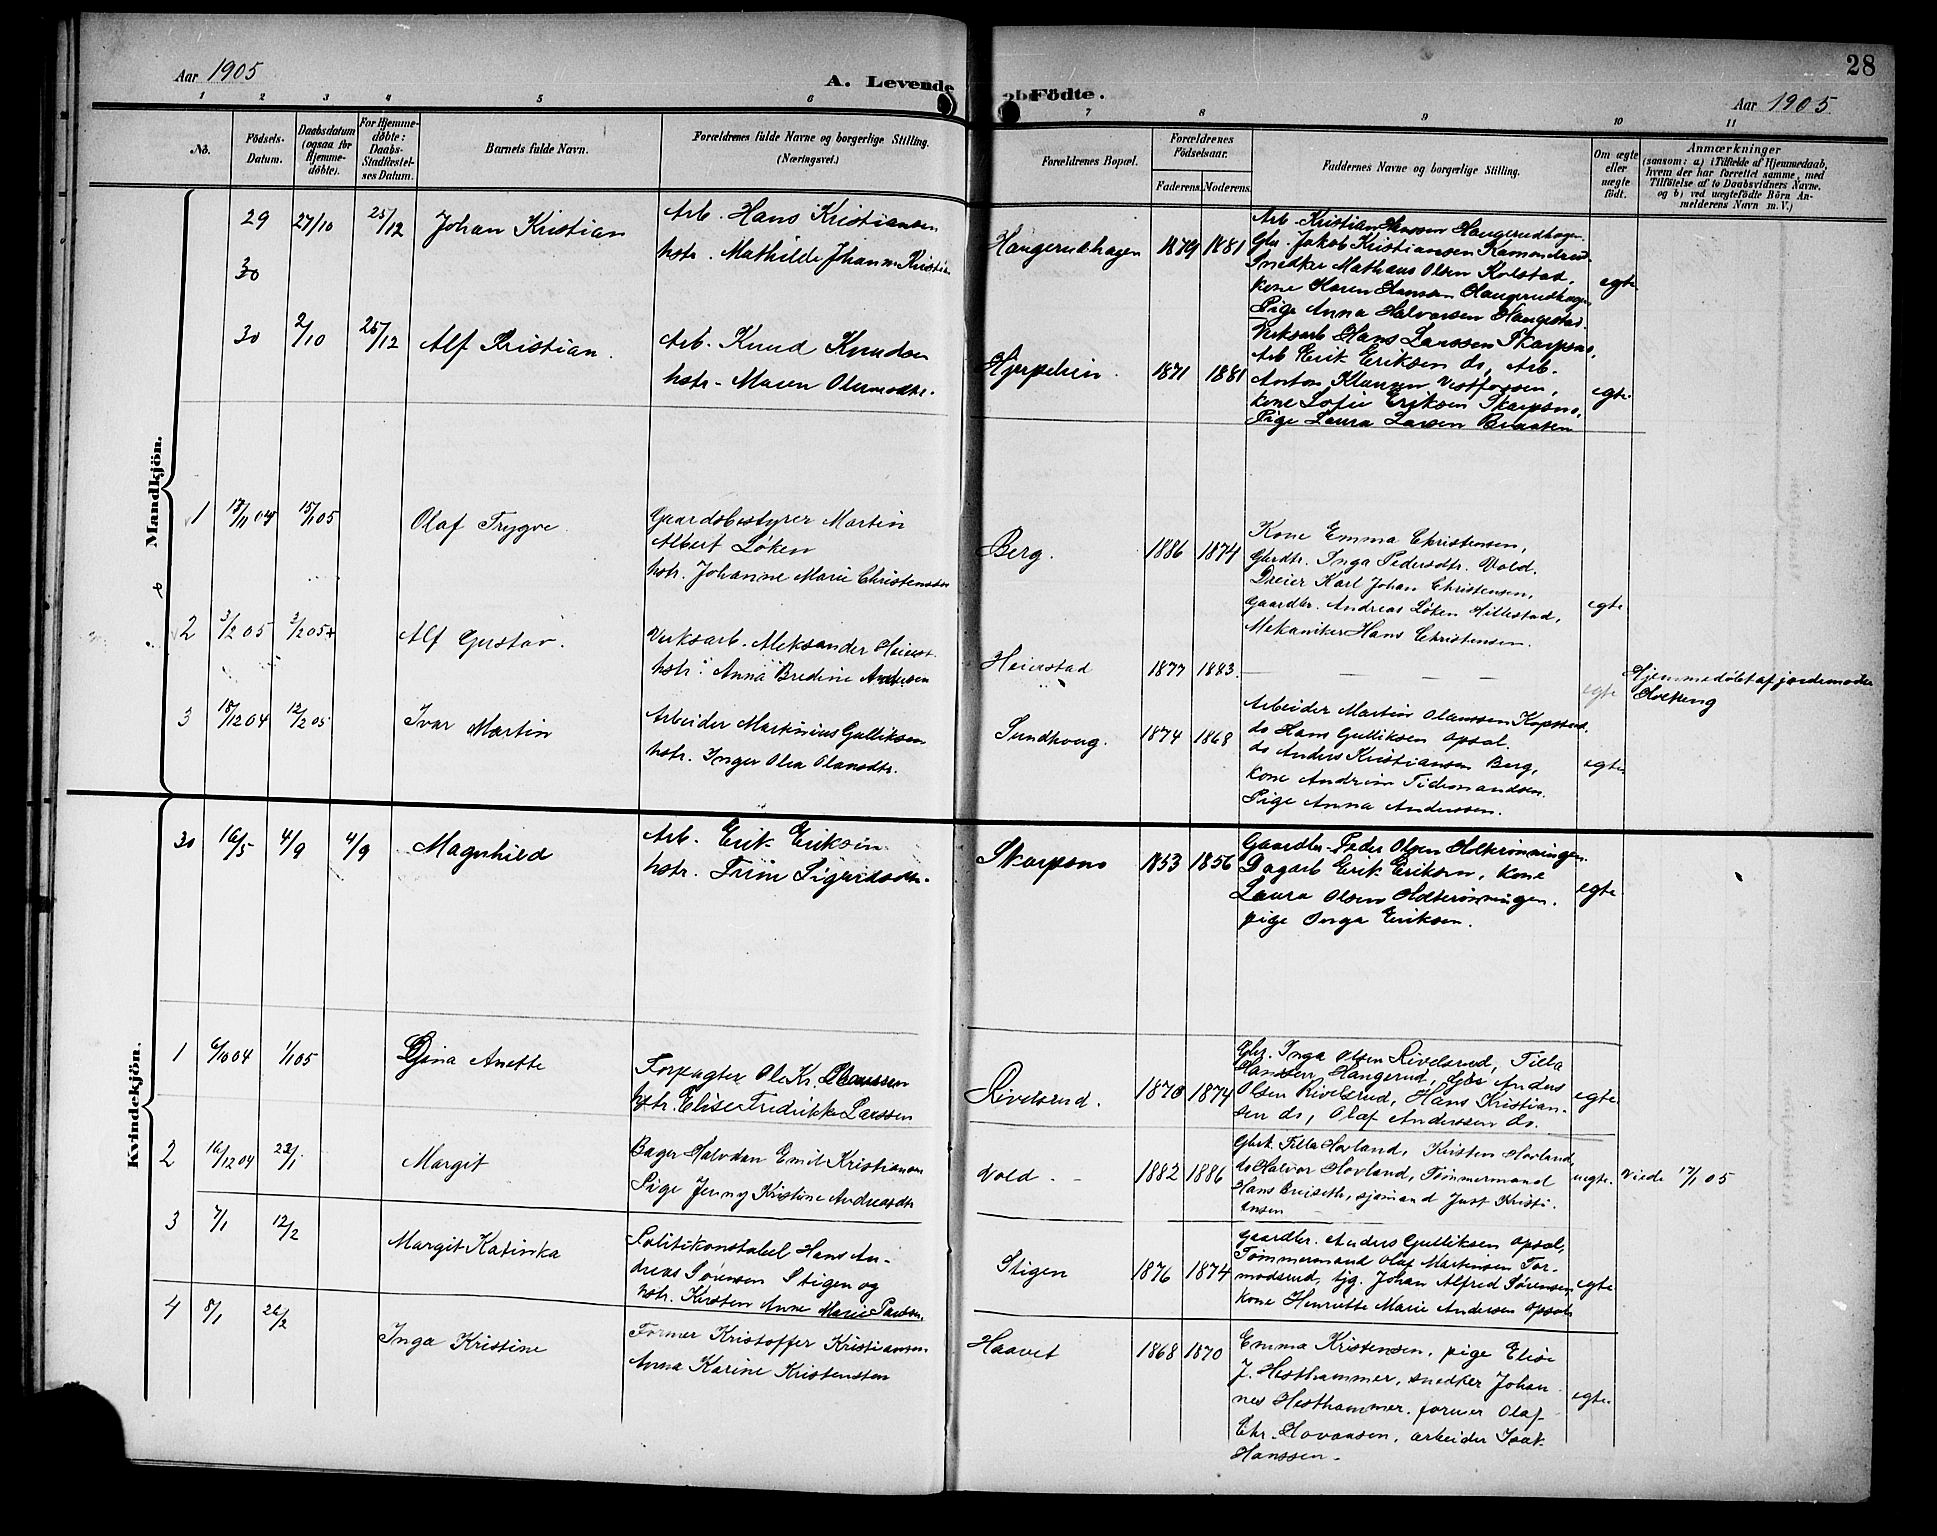 28
Aar 1905
A. Levende Födte.
Aar 1905
1 2 3 4 5 6 7 8 9 10 11
No.
Födsels-Datum.
Daabsdatum (ogsaa for Hjemme-döbte).
For Hjemme-döbte: Daabs-Stadfæstel-ses Datum.
Barnets fulde Navn.
Forældrenes fulde Navne og borgerlige Stilling.
(Næringsvei.)
Forældrenes Bopæl.
Forældrenes Födselsaar.
Faderens. Moderens.
Faddernes Navne og borgerlige Stilling.
Om ægte eller uægte födt.
Anmærkninger
(saasom: a) i Tilfælde af Hjemmedaab,
hvem der har forrettet samme, med
Tilföielse af to Daabsvidners Navne,
og b) ved uægtefödte Börn An-
melderens Navn m. V.)
Mandkjön.
29 27/10 25/12 Johan Kristian
Arb. Hans Kristiansen
hstr. Mathilde Johanne Kristia
Haugerudhagen 1879 1881
Arb. Kristian Hanssen Haugerudhagen
Gbr. Jakob Kristiansen Kamondrud
Snedker Mathæus Olsen Kolstad,
Kone Karen Hanssen Haugerudhagen
Pige Anna Halvorsen Haugestad.
egte
30
30 2/10 25/12 Alf Kristian.
Arb. Knud Knudsen
hstr. Maren Olermodtr.
Hjerpelien. 1871 1881
Verksarb Hans Larssen Skarpsno,
Arb Erik Eriksen do, Arb.
Anton Klausen Vestfossen,
Kone Sofie Eriksen Skarpsno,
Pige Laura Larsen Braaten
egte.
1 17/11 04 15/1 05 Olaf Trygve.
Gaardsbestyrer Martin
Albert Löken
hstr. Johanne Marie Christensen
Berg. 1886 1874
Kone Emma Christensen,
Gbrdtr. Inga Pedersdtr. Vold.
Dreier Karl Johan Christensen,
Gaardbr. Andreas Löken Hillestad,
Mekaniker Hans Christensen.
egte
2 3/2 05 3/2 05+ Alf Gustav.
Verksarb. Aleksander Heierst.
hstr. Anna Bredine Andersen
Heierstad 1877 1883. — — — —
egte Hjemmedöbt af jordemoder
Holteng
3 18/12 04 12/2 05 Ivar Martin
Arbeider Martinius Gulliksen
hstr. Inger Olea Olansdtr.
Sundhoug. 1874 1868
Arbeider Martin Olanssen Kopstad,
do Hans Gulliksen Opsal.
do Anders Kristiansen Berg,
Kone Andrine Tidemandsen.
Pige Anna Anderssen.
egte
Kvindekjön.
30 16/5 4/9 4/9 Magnhild
Arb. Erik Eriksen
hstr. Triin Sigridsdtr.
Skarpsno 1853 1856
Gaardbr. Peder Olsen Holtrönningen
Dagarb Erik Eriksen, Kone
Laura Olsen Holterönningen.
pige Inga Eriksen.
egte
1 6/10 04 1/1 05 Gina Anette
Forpagter Ole Kr. Claussen
hstr. Elise Fredrikke Larssen
Rivelsrud. 1870 1874
Gbr. Inga Olsen Rivelsrud, Tilla
Hanssen Haugerud, Gbr Anders
Olsen Rivelsrud, Hans Kristian-
sen do, Olaf Anderssen do.
egte
2 16/12 04 22/1 Margit
Bager Halvdan Emil Kristiansen
Pige Jenny Kristine Andreasdtr
Vold. 1882 1886
Gbrk. Tilla Hovland, Kirsten Hovland,
do Halvor Hovland, Tömmermand
Hans Breiseth, sjömand Just Kristi-
ansen
uegte. Viede 17/1 05
3 7/1 12/2 Margit Katinka
Politikonstabel Hans An-
dreas Sörensen Stigen og
hstr. Kirsten Anne Marie Paulsen,
Stigen 1876 1874
Gaardbr. Anders Gulliksen Opsal,
Tömmermand Olaf Martinsen Tor-
modsrud, tjg. Johan Alfred Sörensen
Kone Henriette Marie Andersen Opsal
egte
4 8/1 26/2 Inga Kristine
Former Kristoffer Kristiansen
Anna Karine Kristensten
Haavet 1868 1870
Emma Kristensen, pige Elise
J. Hesthammer, snedker Johan-
nes Hesthammer, former Olaf
Chr. Hovansen, arbeider Isak
Hanssen.
egte.